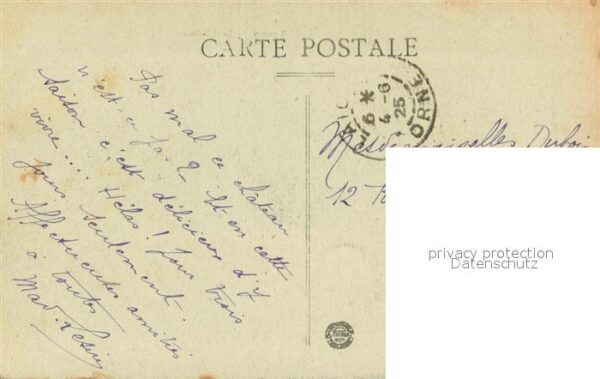 CARTE POSTALE
Pas mal ce château
n'est-ce pas ? Et en cette
saison c'est délicieux d'y
vivre .... Hélas ! pour trois
jours seulement.
Affectueuses amitiés
à toutes
Mad.
6 *
4 - 6
25
ORNE
Mesdemoiselles Dubois
12 R
privacy protection
Datenschutz